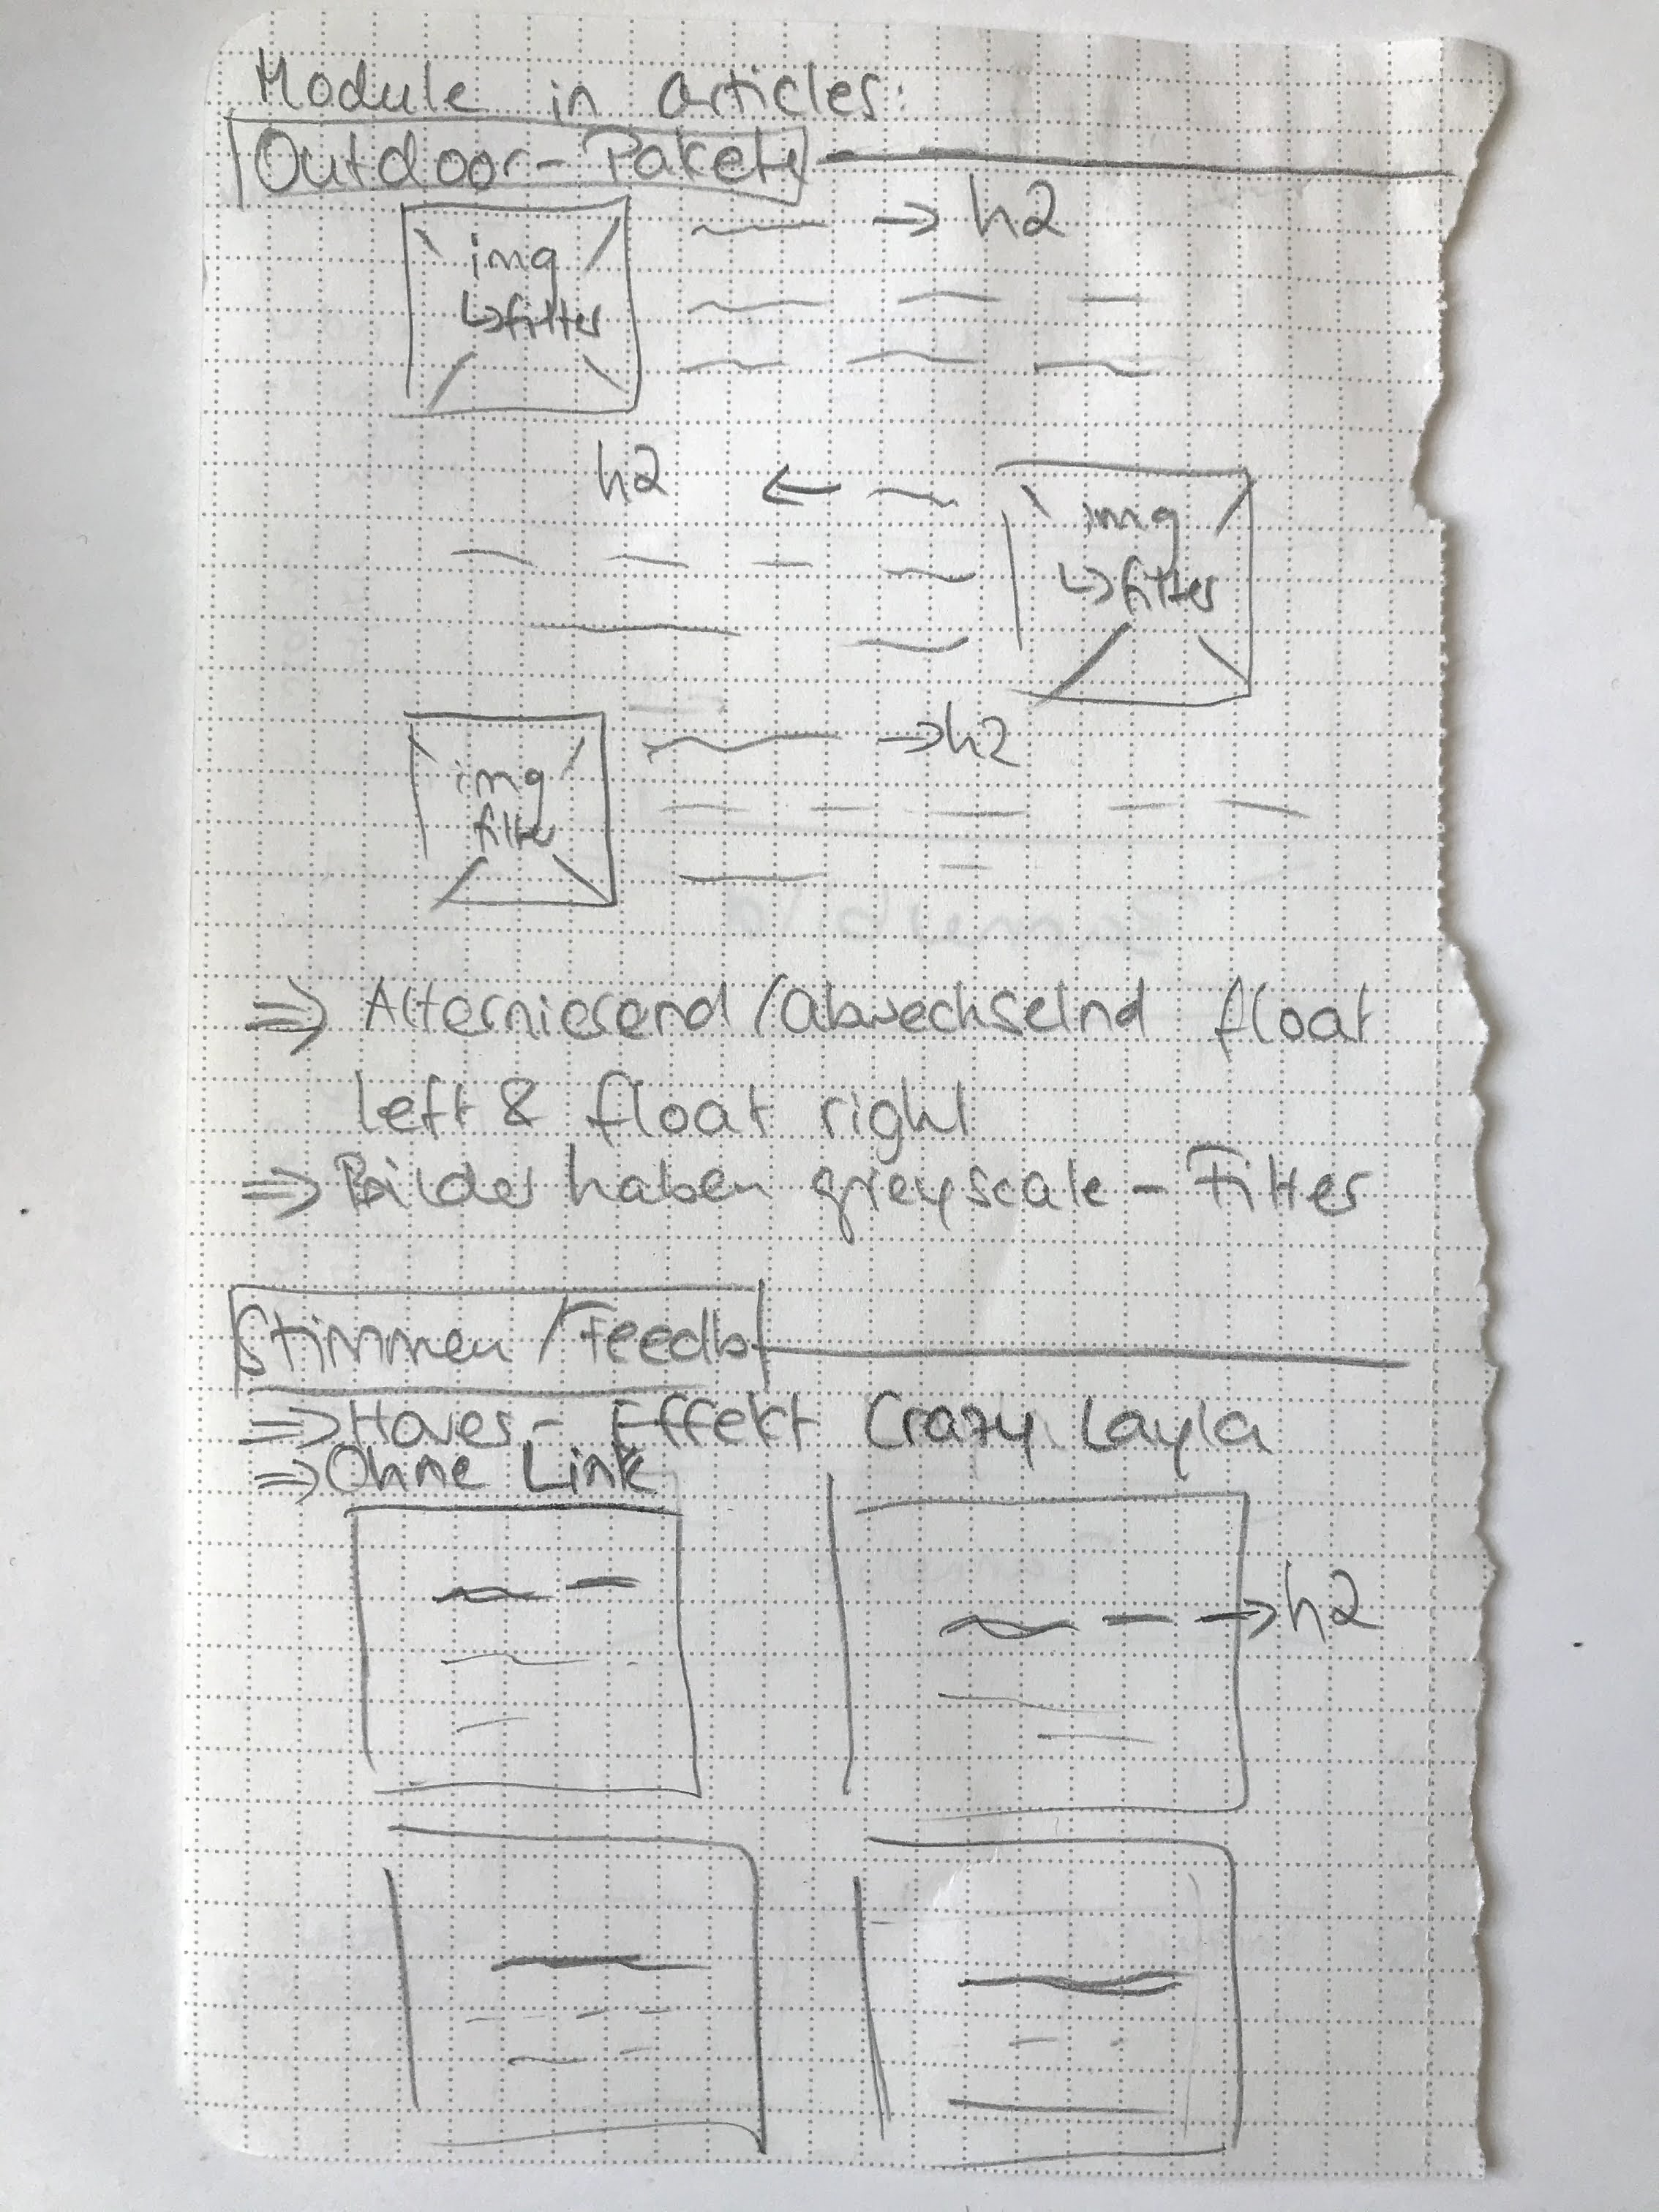 Module in articles:
Outdoor-Pakete
img → h2
↳filter
h2 ← img
↳filter
img → h2
filter
⇒ Alternierend/abwechselnd float
left & float right
⇒ Bilder haben greyscale-Filter
Stimmen/Feedb
⇒ Hover-Effekt Crazy Layla
⇒ Ohne Link
→ h2